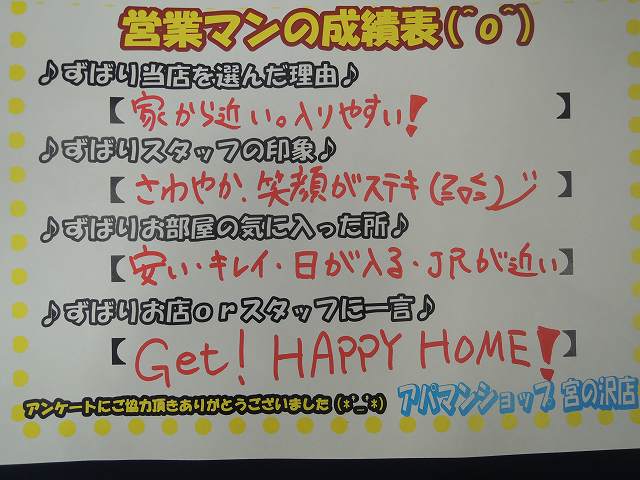 営業マンの成績表(^o^)
♪ずばり当店を選んだ理由♪
【家から近い。入りやすい!】
♪ずばりスタッフの印象♪
【さわやか、笑顔がステキ(≧▽≦)ノ】
♪ずばりお部屋の気に入った所♪
【安い・キレイ・日が入る・JRが近い】
♪ずばりお店orスタッフに一言♪
【Get! HAPPY HOME!】
アンケートにご協力頂きありがとうございました(*'_'*)
アパマンショップ 宮の沢店